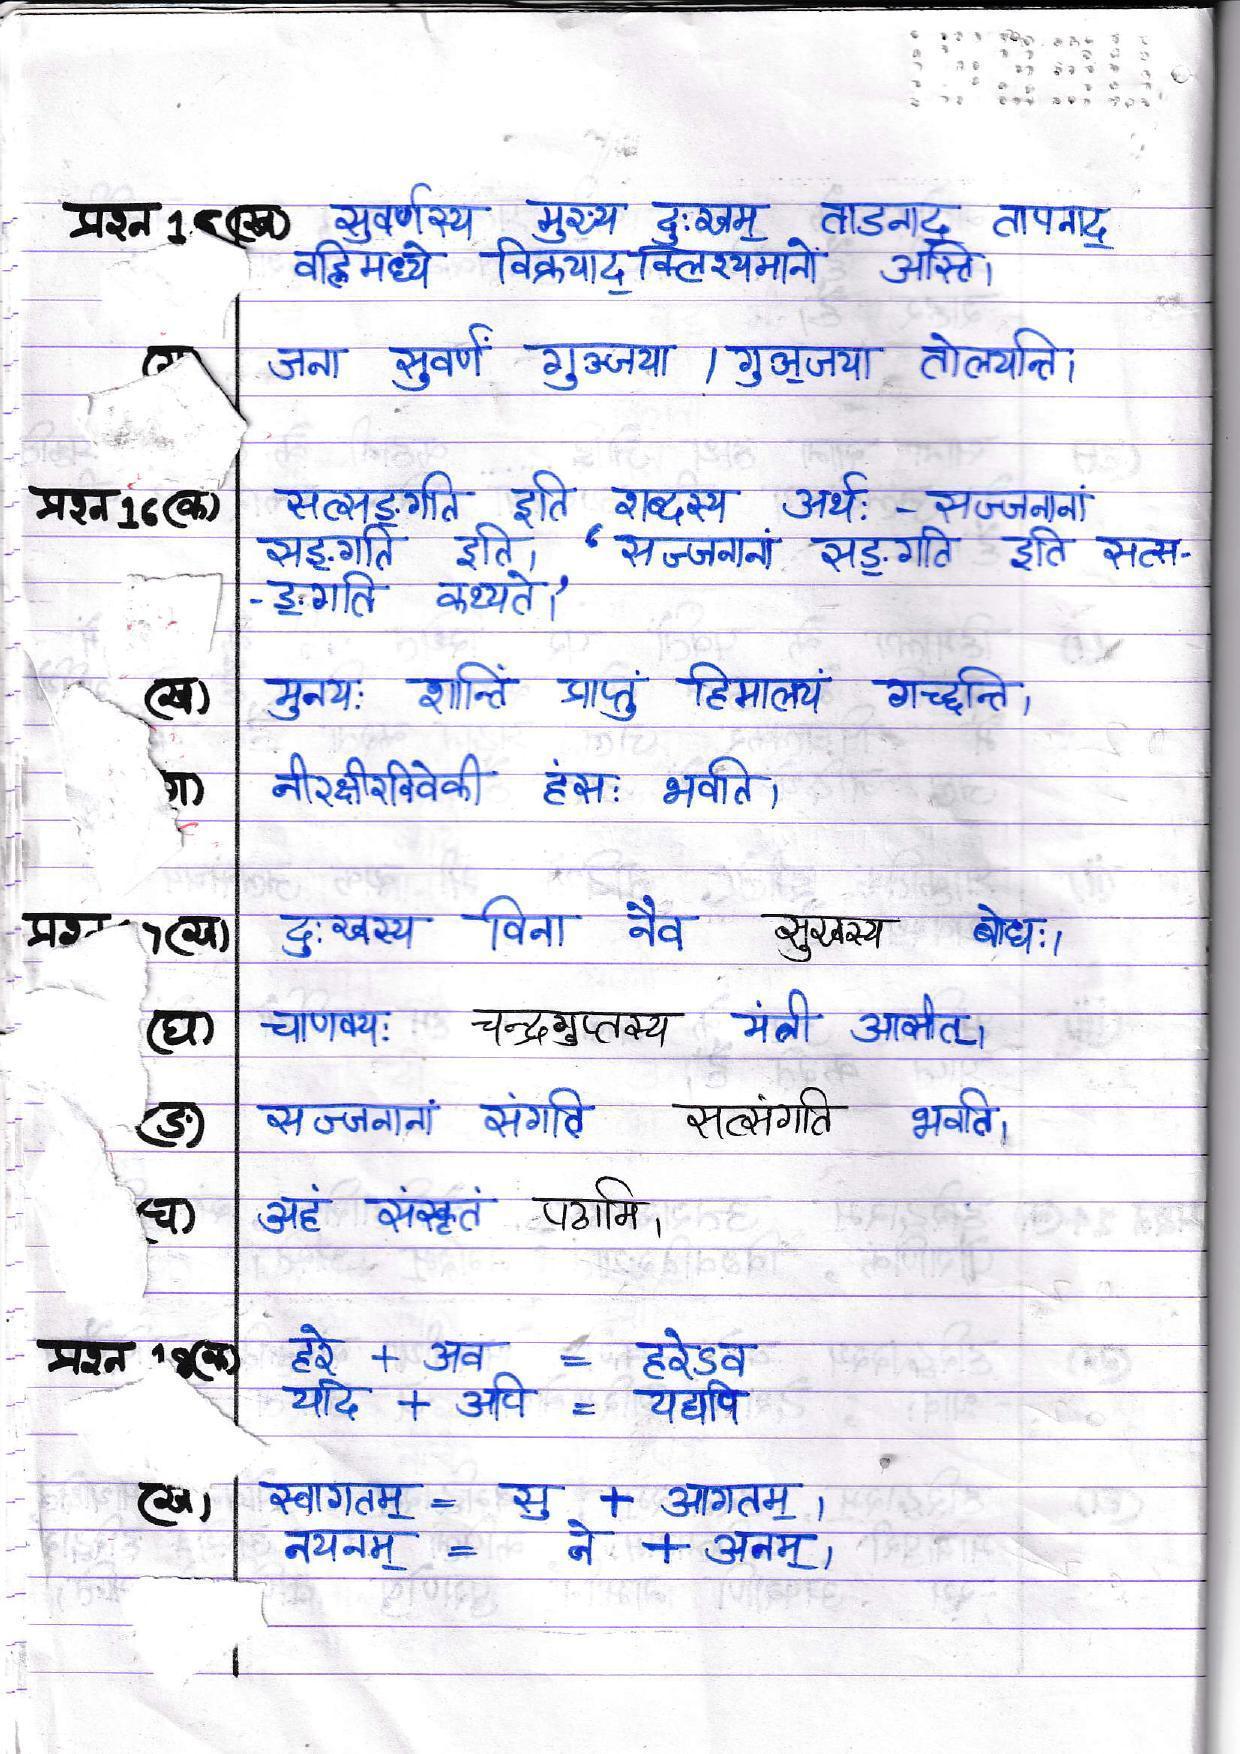 प्रश्न 1 (ख) सुवर्णस्य मुख्य दुःखम् ताडनाद् तापनाद्
वह्निमध्ये विक्रयाद् क्लिश्यमानो अस्ति।
जना सुवर्णं गुञ्जया / गुञ्जया तोलयन्ति।
प्रश्न 16 (क) सत्सङ्गति इति शब्दस्य अर्थः - सज्जनानां
सङ्गति इति। ‘सज्जनानां सङ्गति इति सत्स-
-ङ्गति कथ्यते।’
(ख) मुनयः शान्तिं प्राप्तुं हिमालयं गच्छन्ति।
ग) नीरक्षीरविवेकी हंसः भवति।
दुःखस्य विना नैव सुखस्य बोधः।
(घ) चाणक्यः चन्द्रगुप्तस्य मंत्री आसीत्।
(ङ) सज्जनानां संगति सत्संगति भवति।
(च) अहं संस्कृतं पठामि।
प्रश्न 18 (क) हरे + अव = हरेऽव
यदि + अपि = यद्यपि
(ख) स्वागतम् = सु + आगतम्।
नयनम् = ने + अनम्।